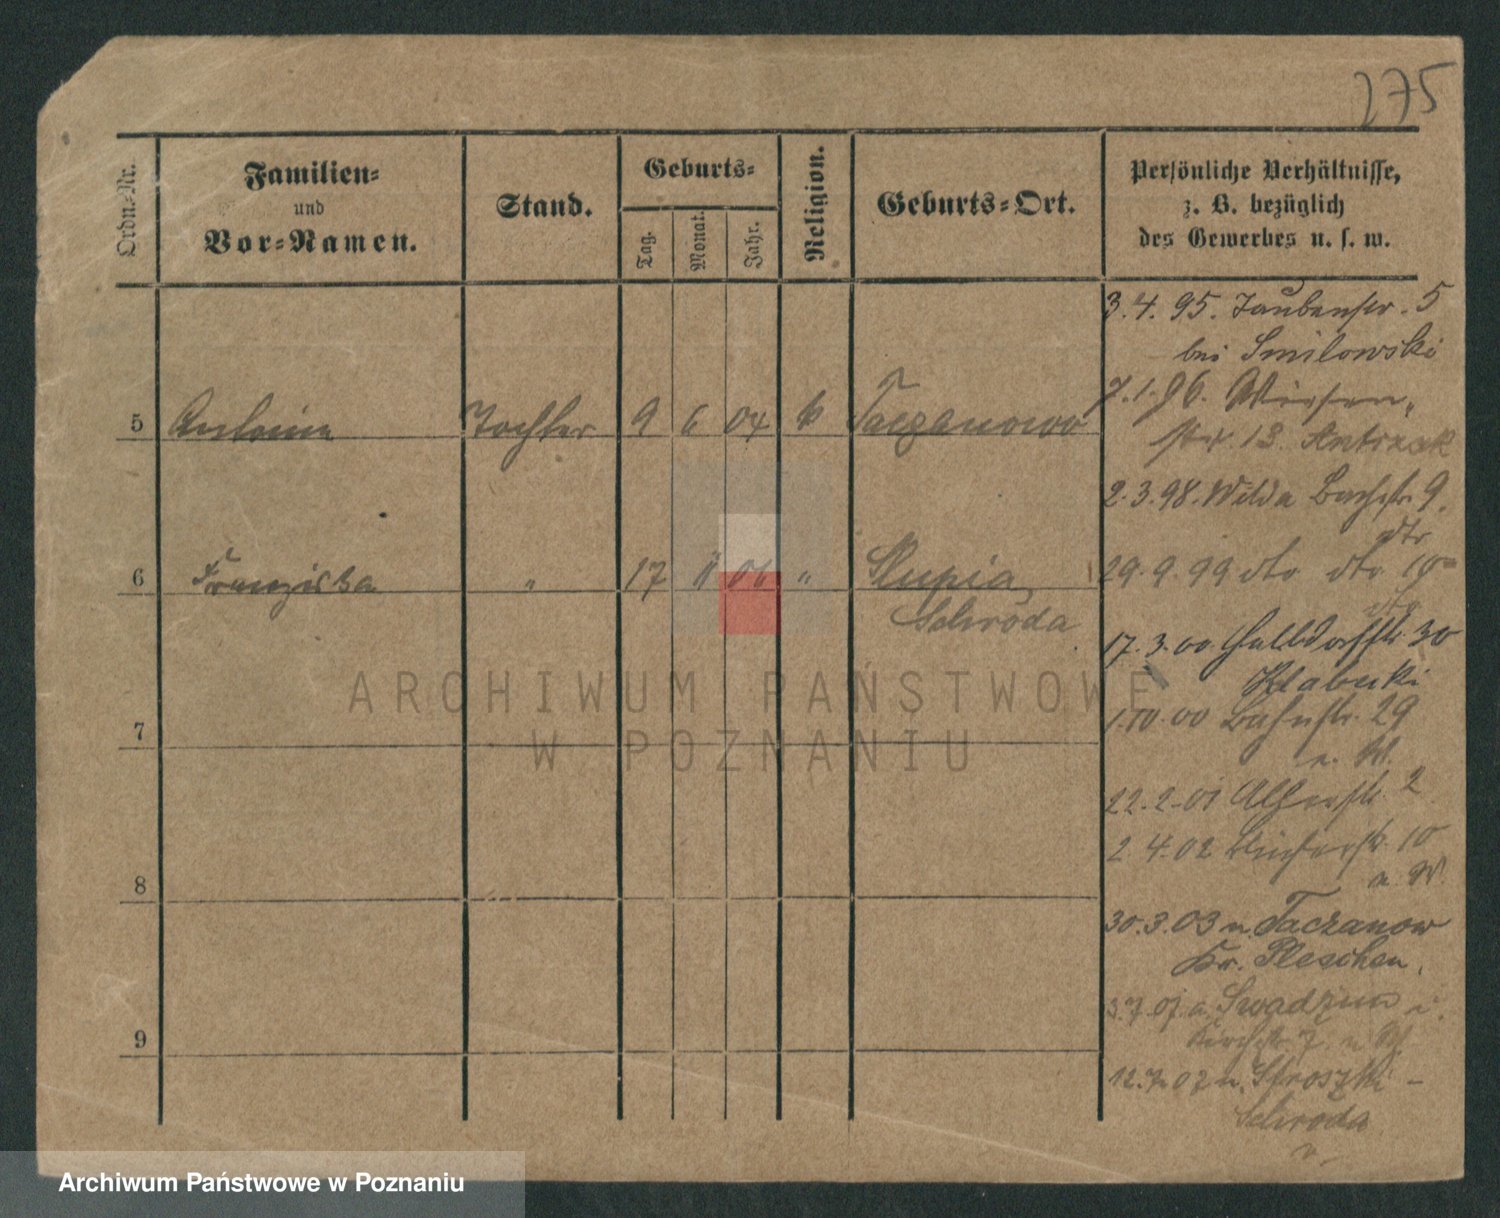 275
Ordn.-Nr.
Familien-
und
Vor-Namen.
Stand.
Geburts-
Tag.
Monat.
Jahr.
Religion.
Geburts-Ort.
Persönliche Verhältnisse,
z. B. bezüglich
des Gewerbes u. s. w.
5 Tochter 9 6 04 k Taczanowo
6 Franziska " 17 " Slupia,
Schroda
7
8
9
3.4.95. Taubenstr. 5
bei Smilowski
7.1.96. Wiesen-
str. 13. Antczak
2.3.98. Wilda Bachstr. 9.
dto
29.9.99 dto dto 10
17.3.00 Halbdorfstr 30
Klabecki
1.10.00 Bachstr. 29
n. W.
22.2.01 2
2.4.02 10
n. W.
30.3.03 n. Taczanow
Kr. Pleschen.
3.7.07 a. Swadzim i.
Kirchstr. 7. n. W.
12.7.07 n. Stroszki -
Schroda
ARCHIWUM PAŃSTWOWE
W POZNANIU
Archiwum Państwowe w Poznaniu